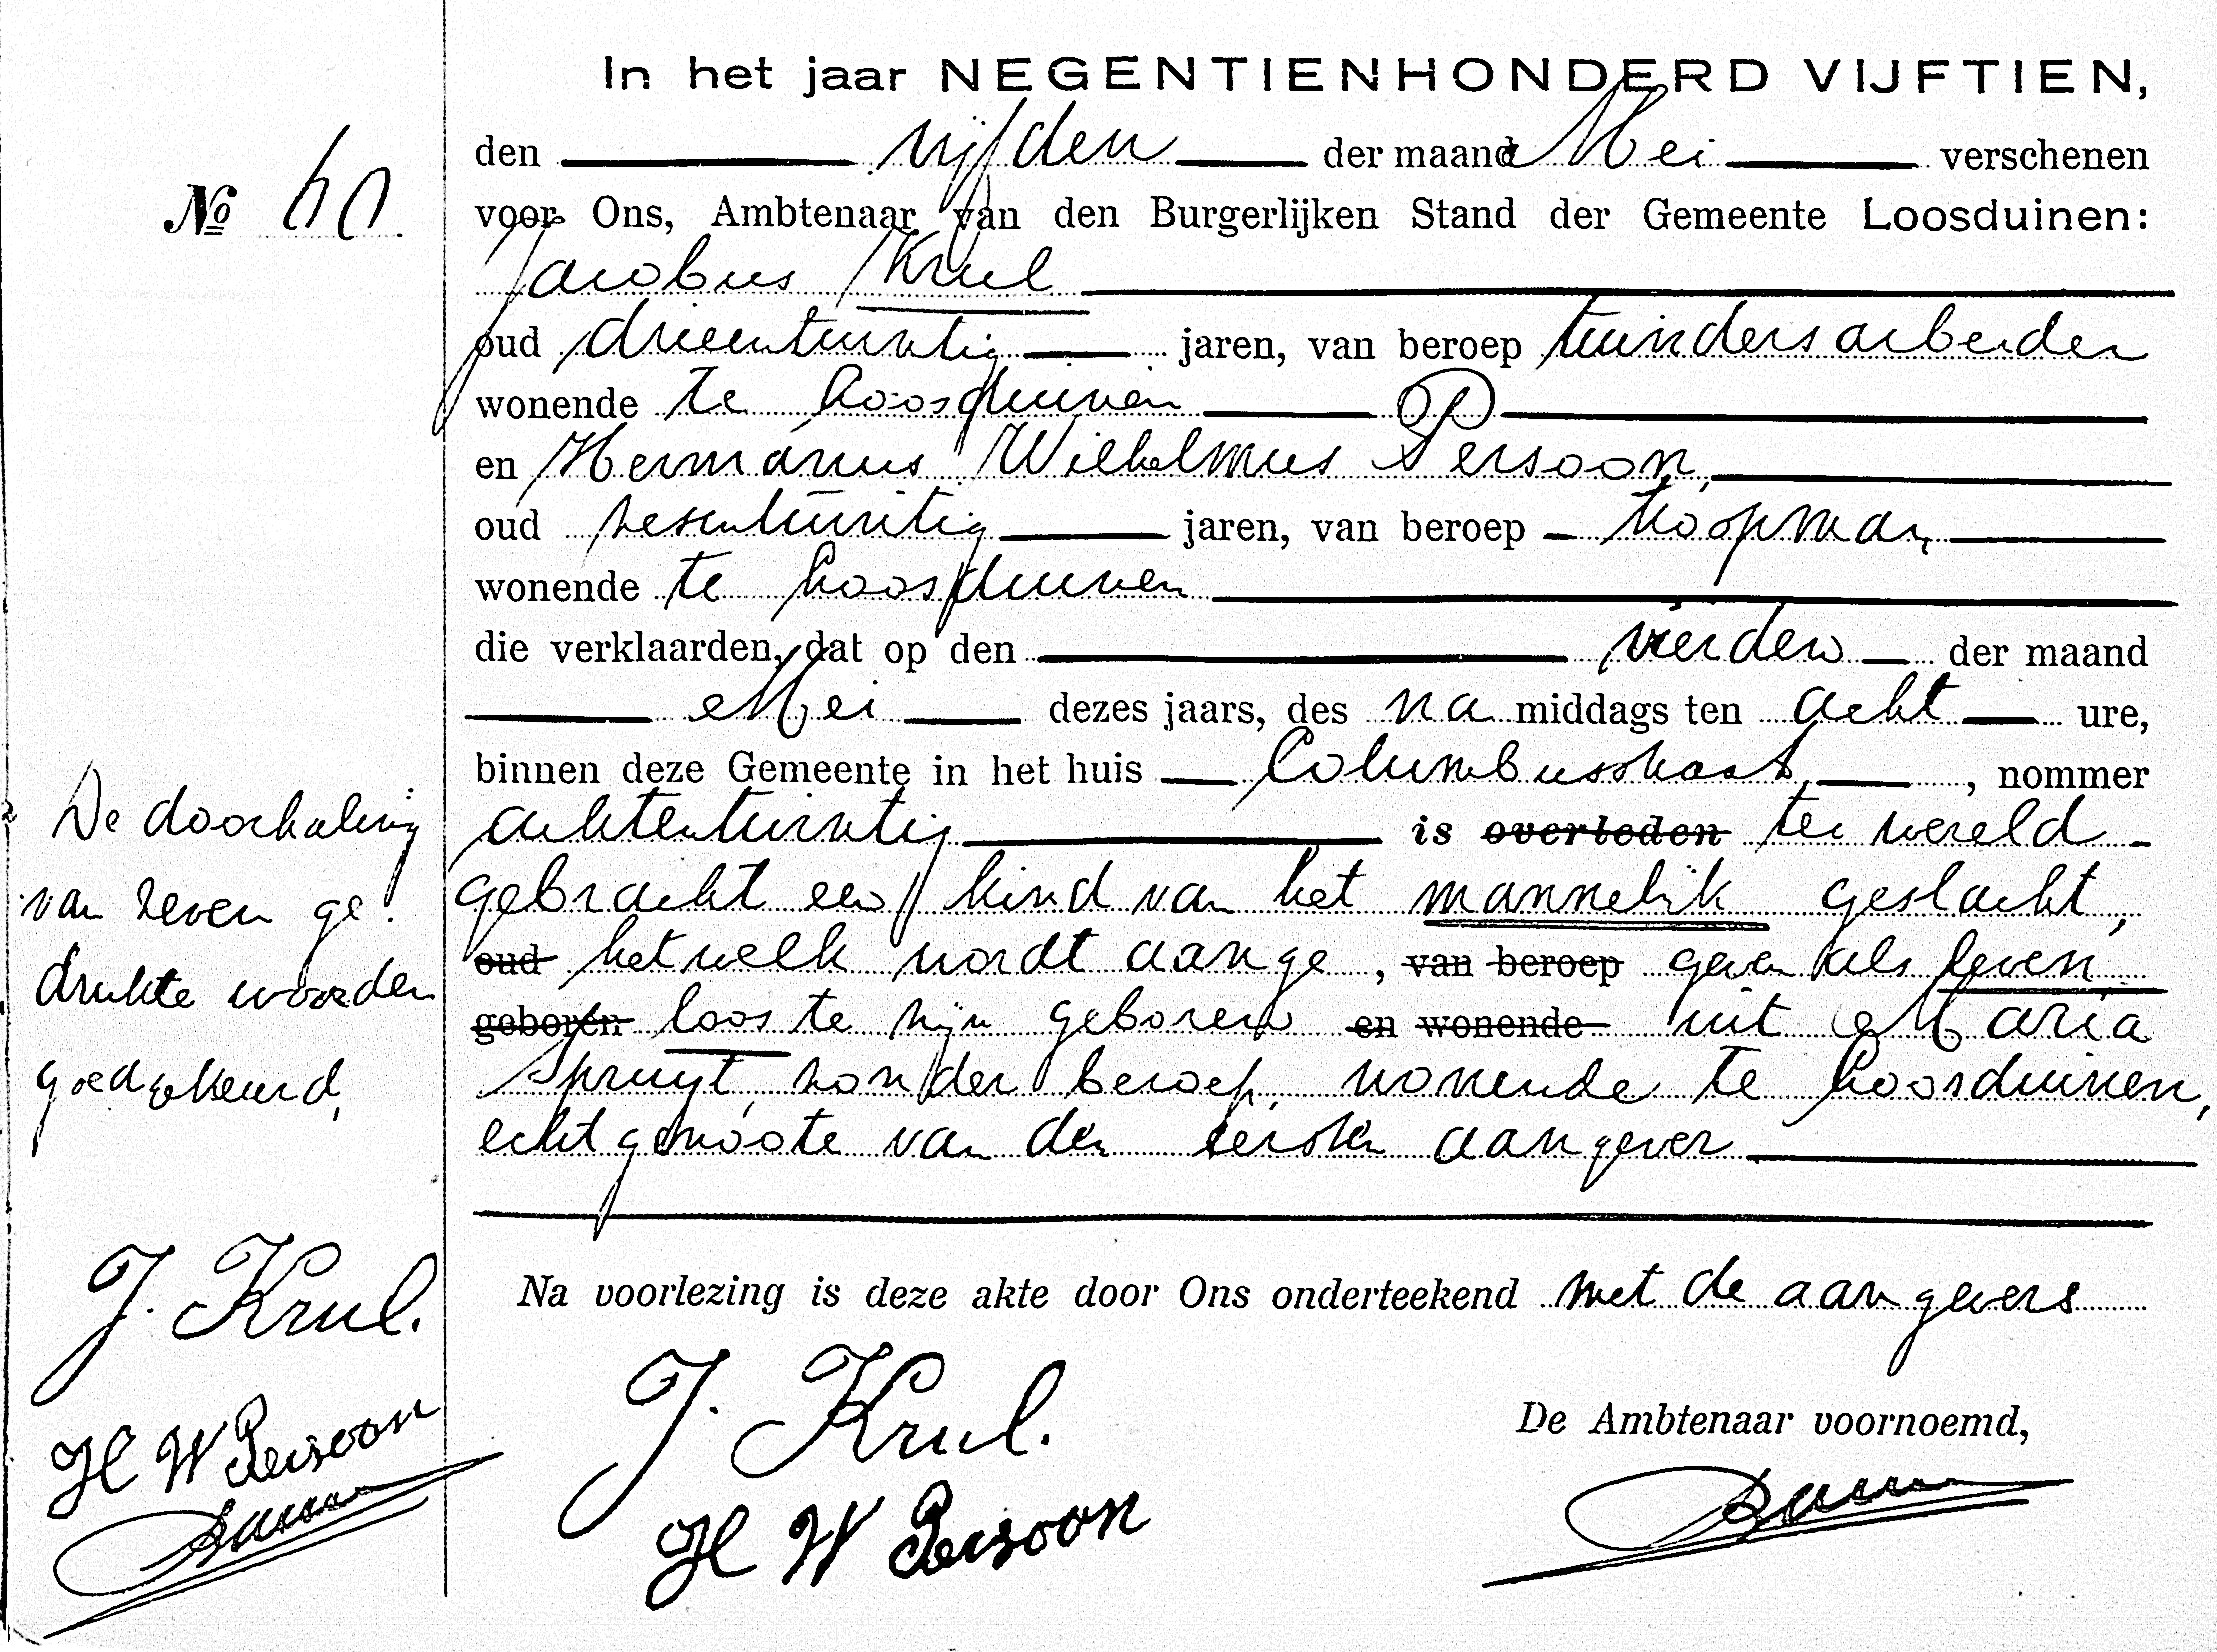 In het jaar NEGENTIENHONDERD VIJFTIEN,
den vijfden der maand Mei verschenen
No 60.
voor Ons, Ambtenaar van den Burgerlijken Stand der Gemeente Loosduinen:
Jacobus Krul
oud drieentwintig jaren, van beroep tuindersarbeider
wonende te Loosduinen
en Hermanus Wilhelmus Persoon,
oud zesentwintig jaren, van beroep koopman
wonende te Loosduinen
die verklaarden, dat op den vierden der maand
Mei dezes jaars, des na middags ten acht ure,
binnen deze Gemeente in het huis Columbusstraat, nommer
achtentwintig is overleden ter wereld
gebracht een kind van het mannelijk geslacht,
oud hetwelk wordt aange, van beroep geven als leven
geboren loos te zijn geboren en wonende uit Maria
Spruyt, zonder beroep, wonende te Loosduinen,
echtgenoote van den eersten aangever
De doorhaling
van zeven ge-
drukte woorden
goedgekeurd,
J. Krul.
H W Persoon
Na voorlezing is deze akte door Ons onderteekend met de aangevers
J. Krul.
H W Persoon
De Ambtenaar voornoemd,